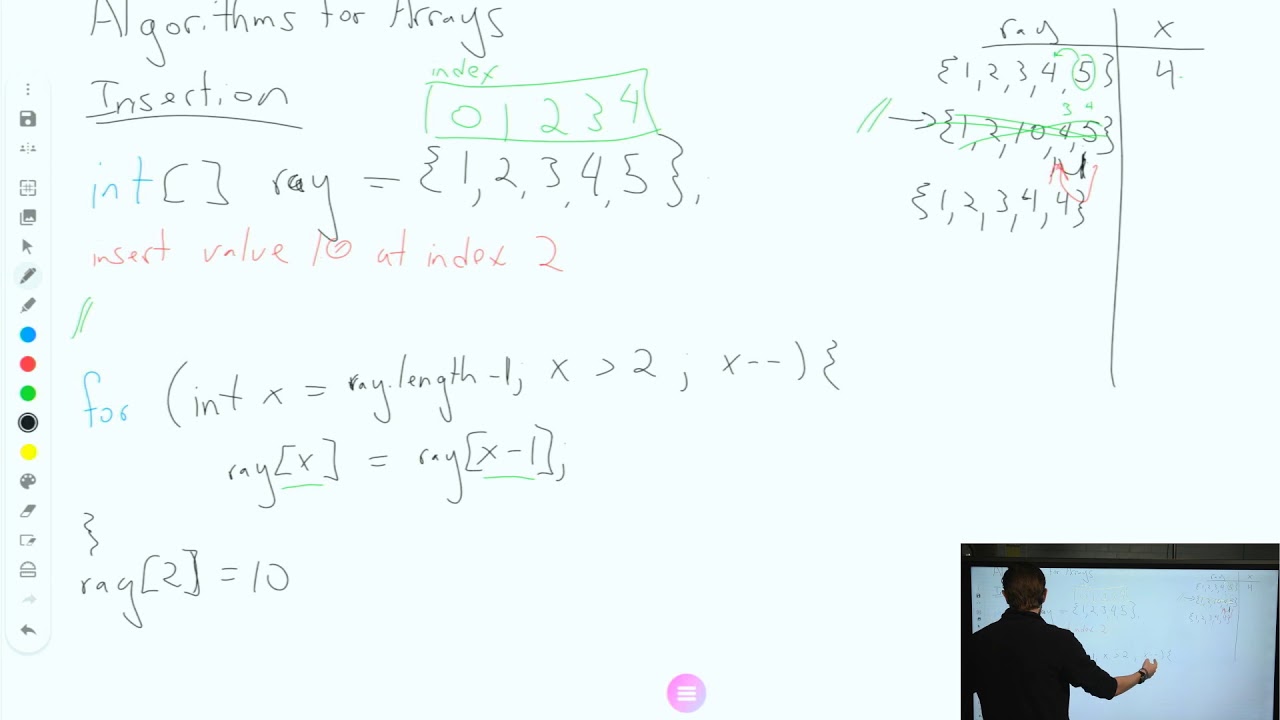 Algorithms for Arrays
Insertion
index
0 1 2 3 4
int[] ray = {1, 2, 3, 4, 5};
insert value 10 at index 2
//
for (int x = ray.length-1; x > 2 ; x--) {
ray[x] = ray[x-1];
}
ray[2] = 10
ray x
{1, 2, 3, 4, 5} 4
3 4
// → {1, 2, 10, 4, 5}
{1, 2, 3, 4, 4}